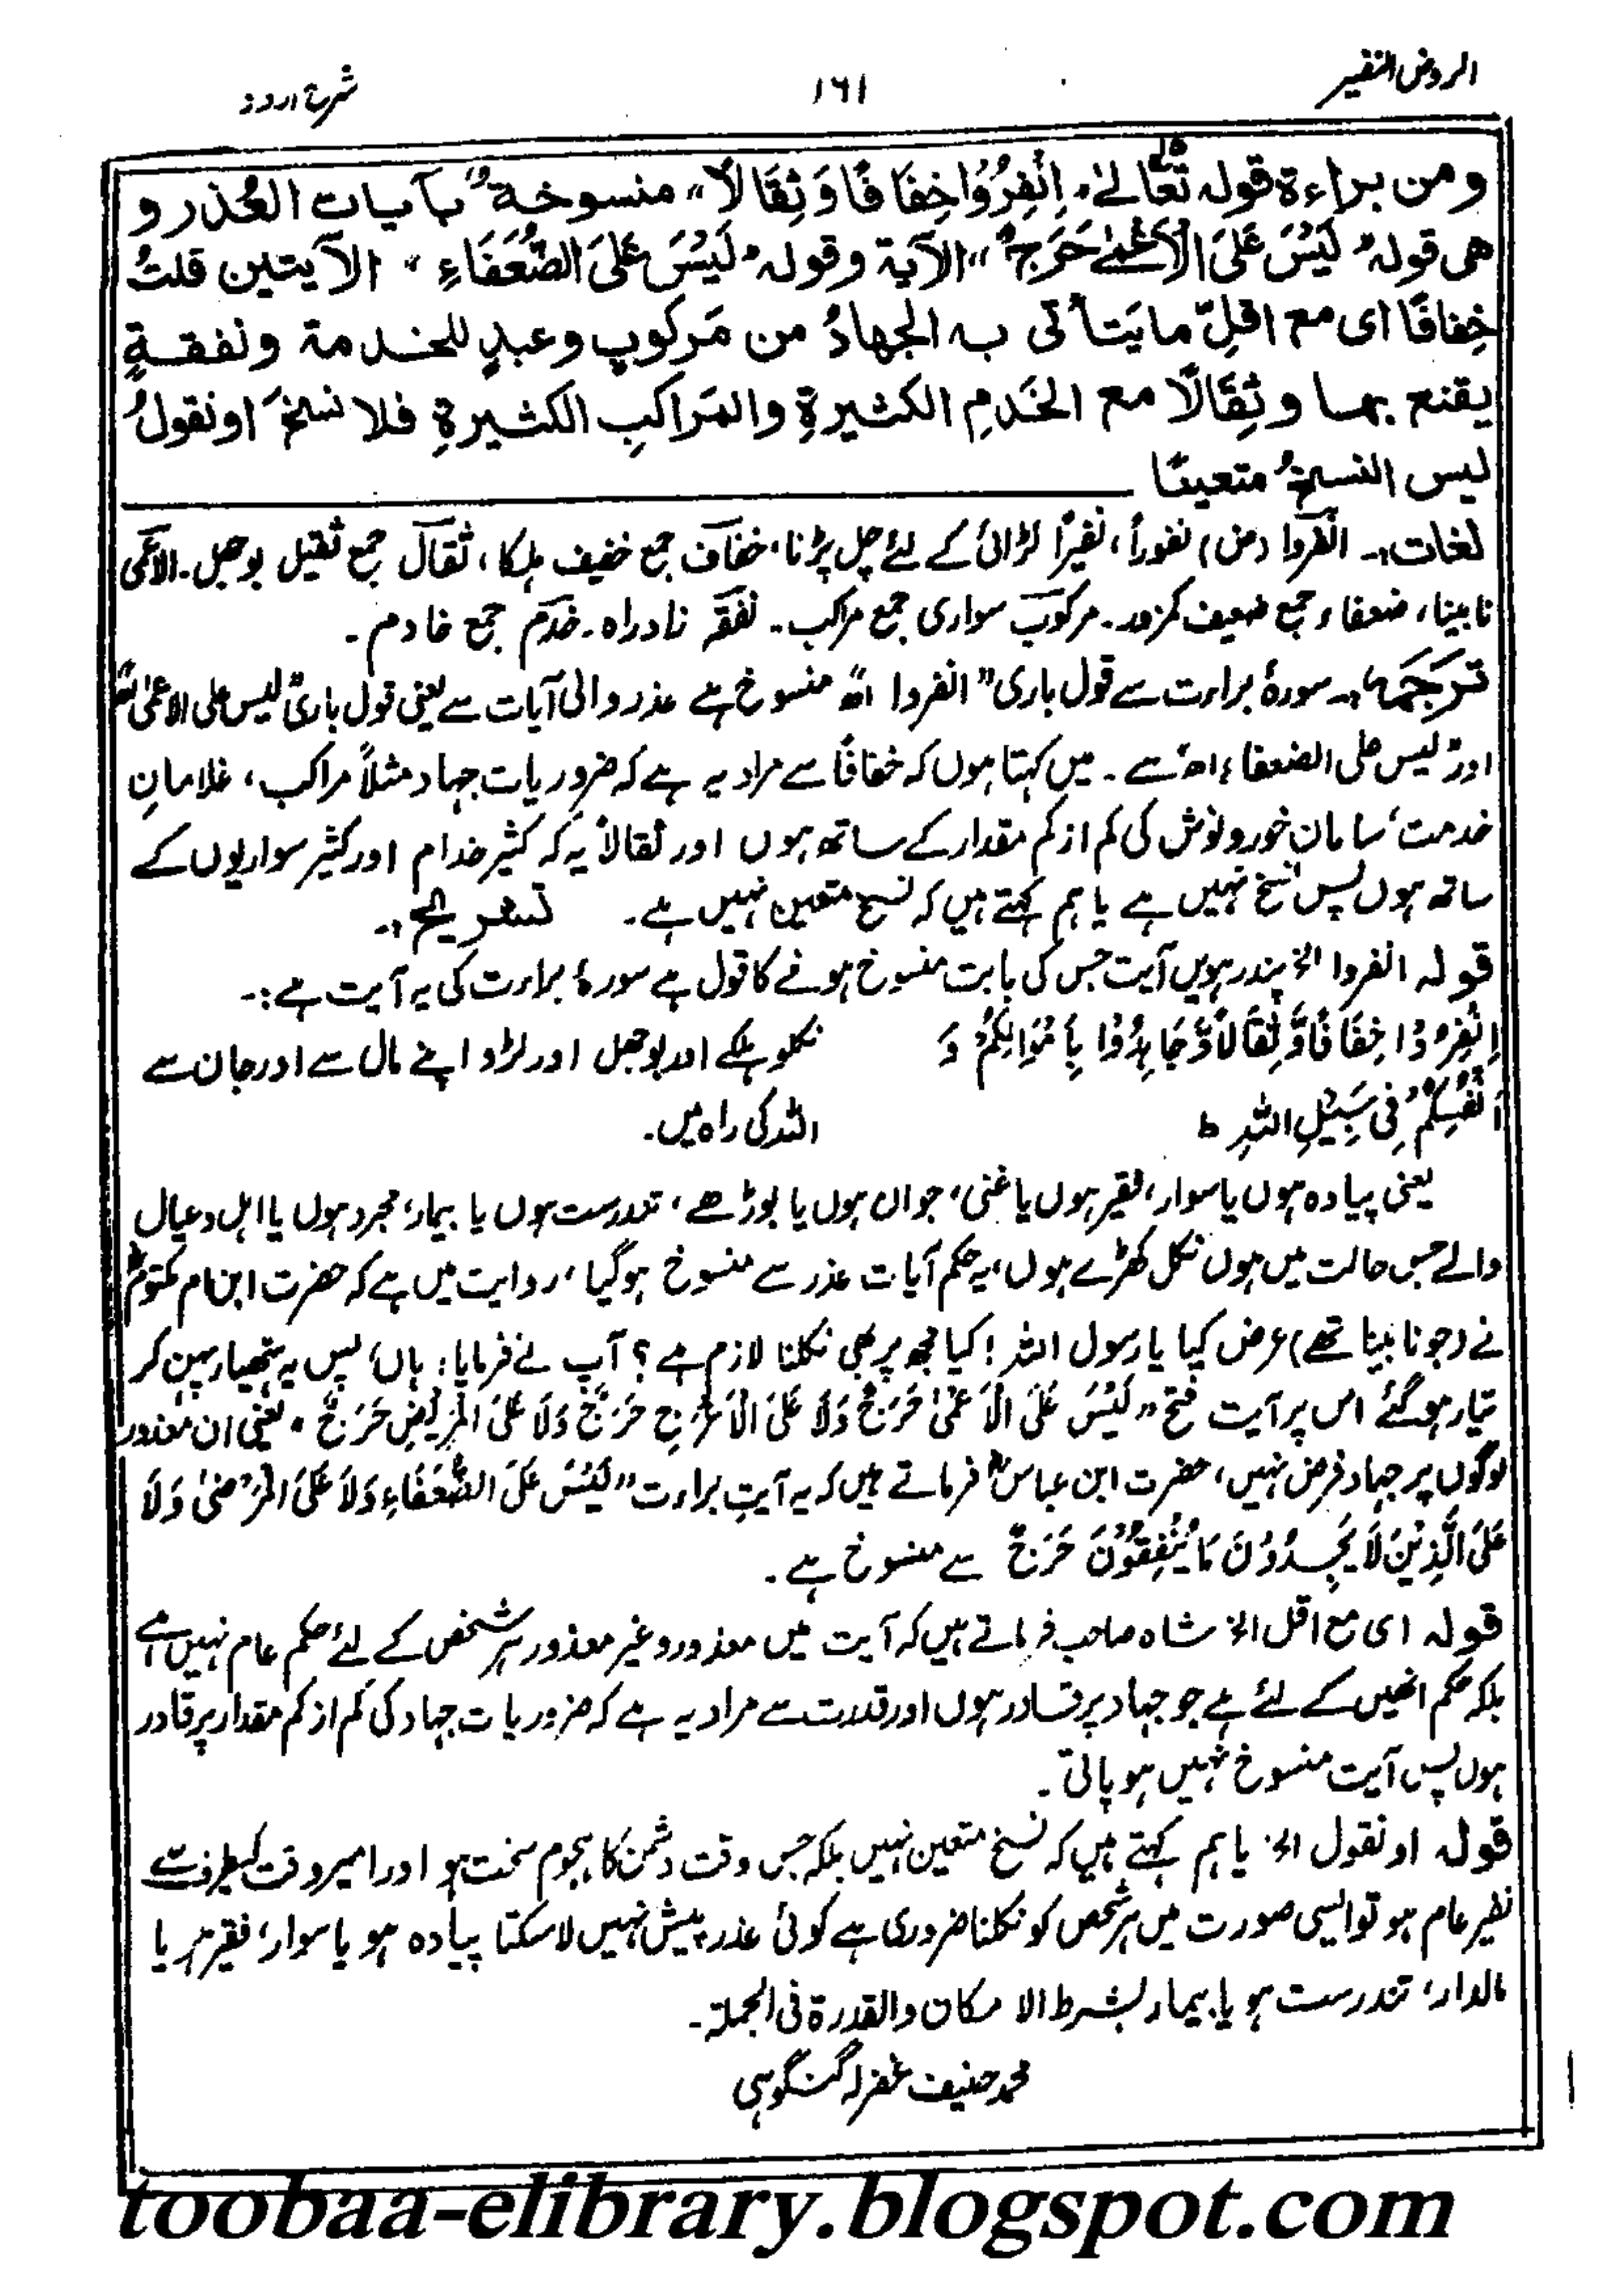 الروض النضیر
۱۶۱
شرح اردو
ومن براءة قوله تعالیٰ "اِنْفِرُوْا خِفَافًا وَ ثِقَالًا" منسوخة بآيات العُذر و
هی قوله "لَيْسَ عَلَى الْاَعْمٰى حَرَجٌ" الآية وقوله "لَيْسَ عَلَى الضُّعَفَاءِ" الآيتين قلتُ
خِفافًا ای مع اقلِّ ما يَتأتى به الجهادُ من مَركوبٍ وعبدٍ للخدمة ونفقةٍ
يقنع بها وثِقَالًا مع الخَدمِ الكثيرةِ والمَراكبِ الكثيرةِ فلا نسخَ او نقولُ
ليس النسخُ متعينًا
لغات:۔ انفروا (ض) نفوراً، نفیراً لڑائی کے لئے چل پڑنا، خفاف جمع خفیف ہلکا، ثقال جمع ثقیل بوجھل۔ الاعمی
نابینا، ضعفاء جمع ضعیف کمزور۔ مرکوب سواری جمع مراکب۔ نفقہ زادراہ۔ خدم جمع خادم۔
ترجمہ:۔ سورۂ براءت سے قول باری "انفروا اھ" منسوخ ہے عذر والی آیات سے یعنی قول باری "لیس علی الاعمیٰ اھ"
اور "لیس علی الضعفاء اھ" سے۔ میں کہتا ہوں کہ خفافًا سے مراد یہ ہے کہ ضروریات جہاد مثلاً مراکب، غلامانِ
خدمت، سامان خور و نوش کی کم از کم مقدار کے ساتھ ہوں اور ثقالاً یہ کہ کثیر خدام اور کثیر سواریوں کے
ساتھ ہوں پس نسخ نہیں ہے یا ہم کہتے ہیں کہ نسخ متعین نہیں ہے۔ تشریح:۔
قولہ انفروا الخ پندرہویں آیت جس کی بابت منسوخ ہونے کا قول ہے سورۂ براءت کی یہ آیت ہے:۔
اِنْفِرُوْا خِفَافًا وَّثِقَالًا وَّجَاهِدُوْا بِاَمْوَالِكُمْ وَ نکلو ہلکے اور بوجھل اور لڑو اپنے مال سے اور جان سے
اَنْفُسِكُمْ فِیْ سَبِيْلِ اللهِ ط اللہ کی راہ میں۔
یعنی پیادہ ہوں یا سوار، فقیر ہوں یا غنی، جوان ہوں یا بوڑھے، تندرست ہوں یا بیمار، مجرد ہوں یا اہل و عیال
والے جس حالت میں ہوں نکل کھڑے ہوں، یہ حکم آیات عذر سے منسوخ ہوگیا، روایت میں ہے کہ حضرت ابن ام مکتومؓ
نے (جو نابینا تھے) عرض کیا یا رسول اللہ! کیا مجھ پر بھی نکلنا لازم ہے؟ آپ نے فرمایا: ہاں، پس یہ ہتھیار پہن کر
تیار ہوگئے اس پر آیت فتح "لَيْسَ عَلَى الْاَعْمٰى حَرَجٌ وَّلَا عَلَى الْاَعْرَجِ حَرَجٌ وَّلَا عَلَى الْمَرِيْضِ حَرَجٌ" یعنی ان معذور
لوگوں پر جہاد فرض نہیں، حضرت ابن عباسؓ فرماتے ہیں کہ یہ آیتِ براءت "لَيْسَ عَلَى الضُّعَفَاءِ وَلَا عَلَى الْمَرْضٰى وَلَا
عَلَى الَّذِيْنَ لَا يَجِدُوْنَ مَا يُنْفِقُوْنَ حَرَجٌ سے منسوخ ہے۔
قولہ ای مع اقل الخ شاہ صاحب فرماتے ہیں کہ آیت میں معذور و غیر معذور ہر شخص کے لئے حکم عام نہیں ہے
بلکہ حکم انھیں کے لئے ہے جو جہاد پر قادر ہوں اور قدرت سے مراد یہ ہے کہ ضروریات جہاد کی کم از کم مقدار پر قادر
ہوں پس آیت منسوخ نہیں ہو پاتی۔
قولہ او نقول الخ یا ہم کہتے ہیں کہ نسخ متعین نہیں بلکہ جس وقت دشمن کا ہجوم سخت ہو اور امیر وقت کیطرف سے
نفیر عام ہو تو ایسی صورت میں ہر شخص کو نکلنا ضروری ہے کوئی عذر پیش نہیں لا سکتا پیادہ ہو یا سوار، فقیر ہو یا
مالدار، تندرست ہو یا بیمار بشرط الامکان والقدرۃ فی الجملۃ۔
محمد حنیف غفرلہ گنگوہی
toobaa-elibrary.blogspot.com